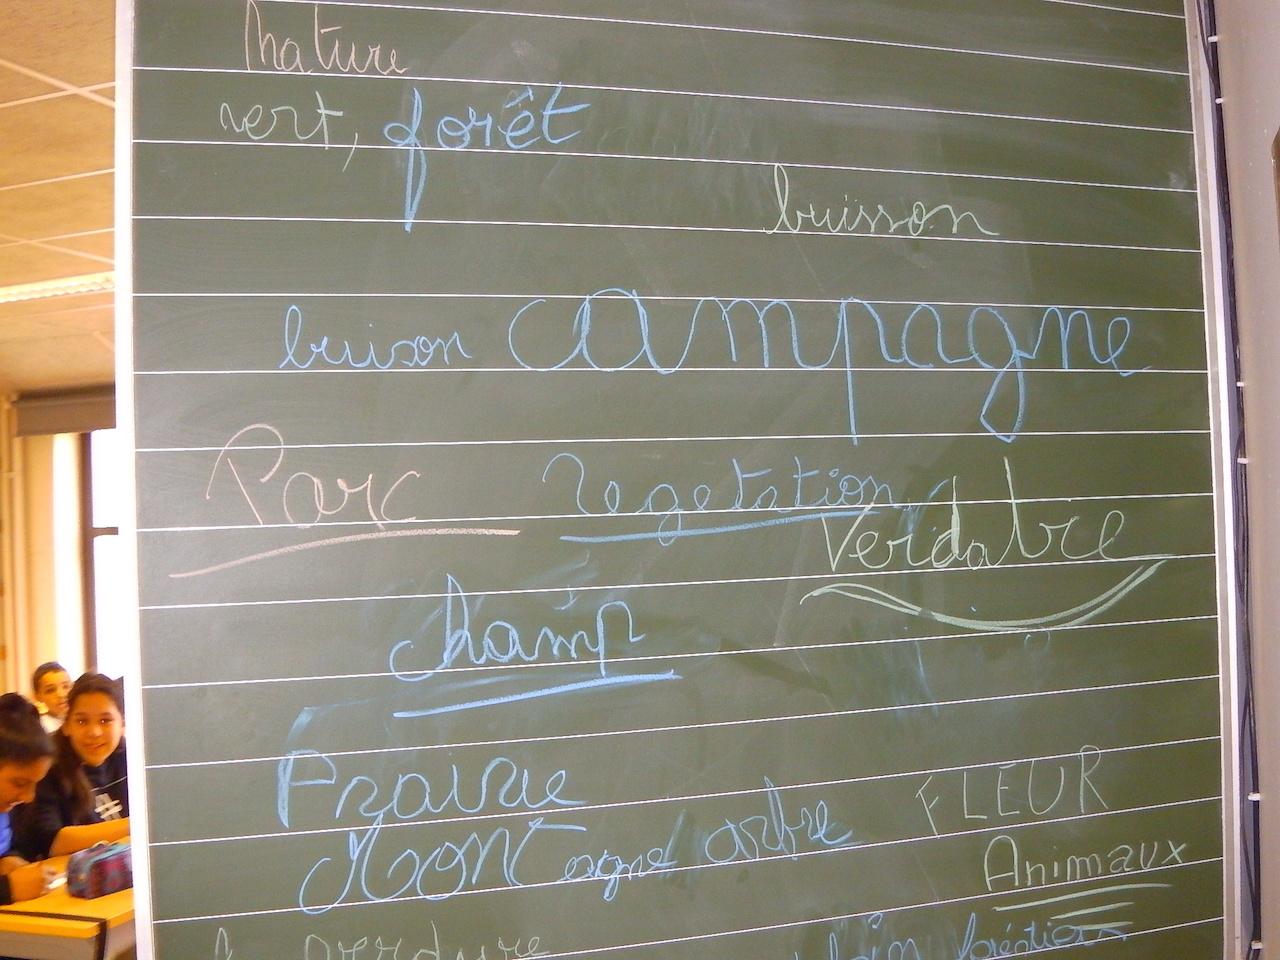 Nature
vert, forêt
buisson
buison campagne
Parc Vegetation
Verdatre
champ
Prairie
Montagne arbre FLEUR
Animaux
verdure